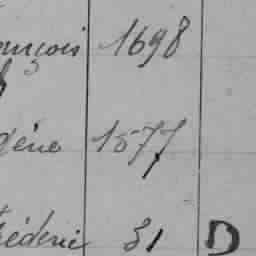 ançois 1698
gène 1577
édéric 31 D